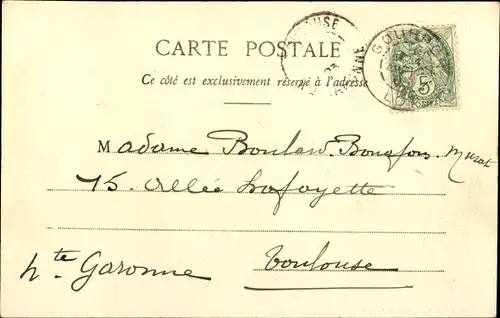 CARTE POSTALE
Ce côté est exclusivement réservé à l'adresse
Madame Boulard-Bonafous-Murat
15. Allée Lafayette
Toulouse
hte. Garonne
5